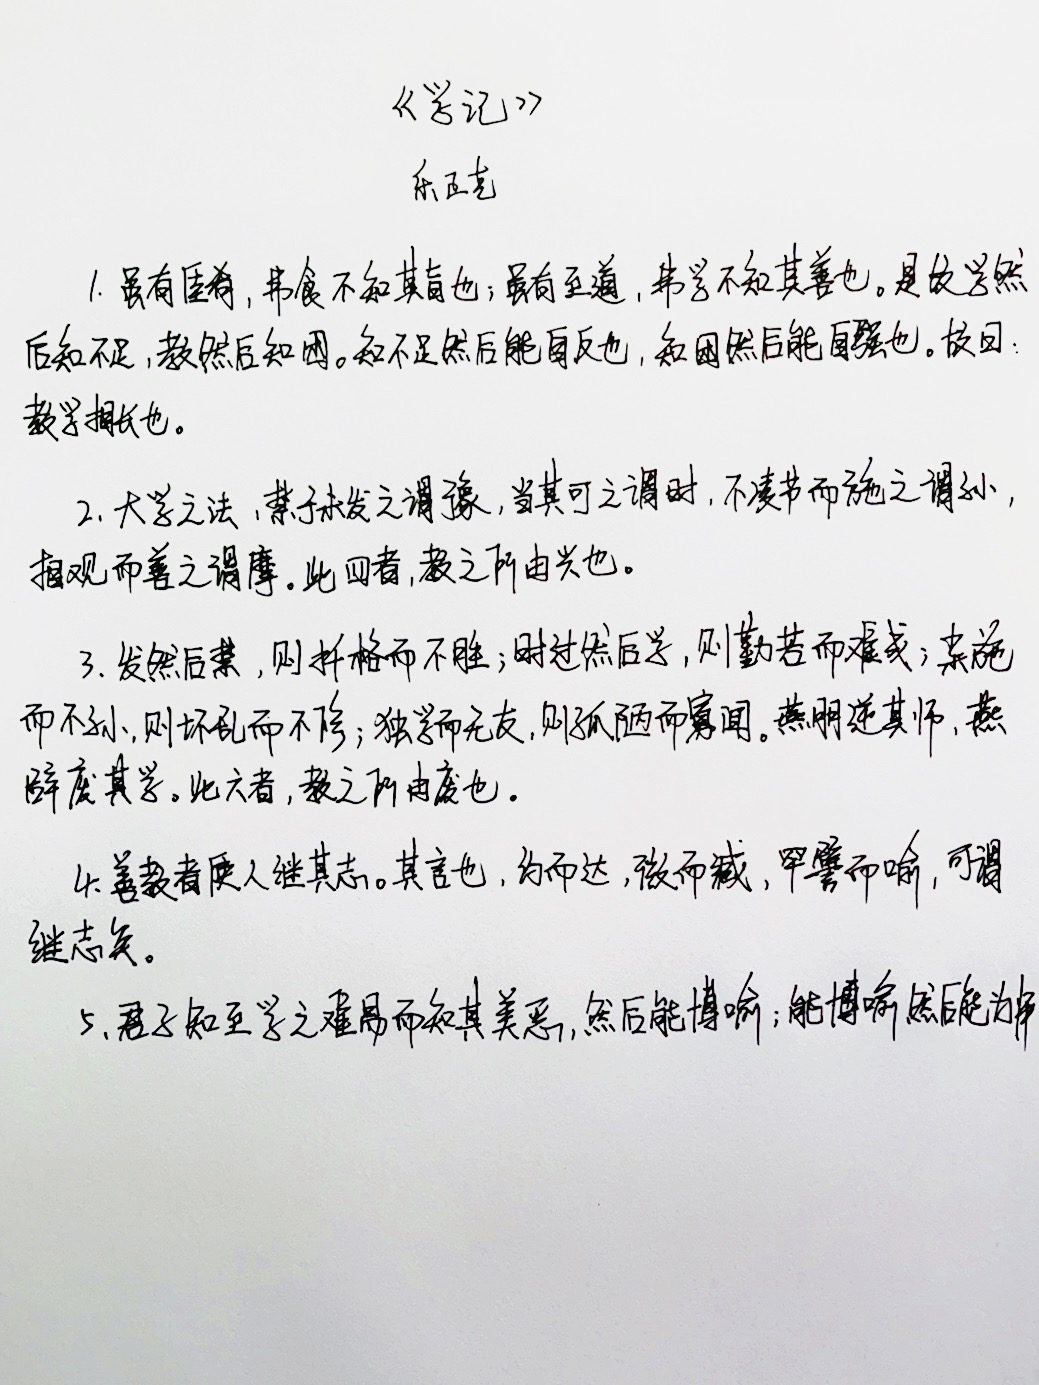 《学记》
乐正克
1. 虽有佳肴，弗食不知其旨也；虽有至道，弗学不知其善也。是故学然
后知不足，教然后知困。知不足然后能自反也，知困然后能自强也。故曰：
教学相长也。
2. 大学之法，禁于未发之谓豫，当其可之谓时，不凌节而施之谓孙，
相观而善之谓摩。此四者，教之所由兴也。
3. 发然后禁，则扞格而不胜；时过然后学，则勤苦而难成；杂施
而不孙，则坏乱而不修；独学而无友，则孤陋而寡闻。燕朋逆其师，燕
辟废其学。此六者，教之所由废也。
4. 善教者使人继其志。其言也，约而达，微而臧，罕譬而喻，可谓
继志矣。
5. 君子知至学之难易而知其美恶，然后能博喻；能博喻然后能为